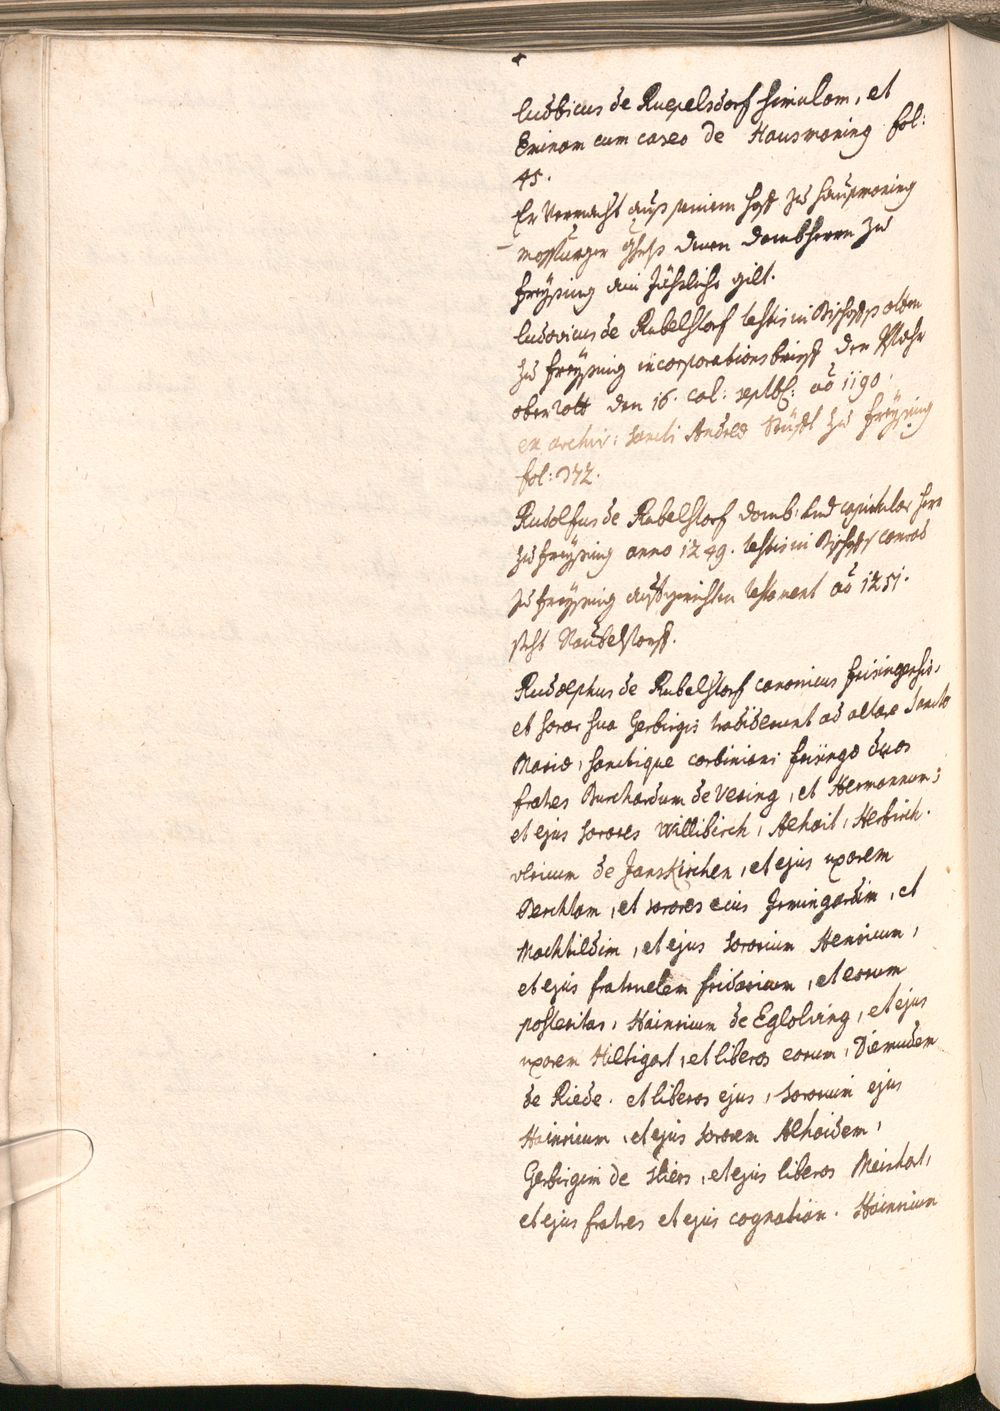 Ludbicus de Ruepelsdorf simulam, et
Eminam cum caseo de Hausmaning fol:
45.
Er Vermacht auß seinem hoff zu haußmaning
mosburger Ghts denen dombherrn zu
freysing ein Jährliche gilt.
Ludovicus de Rubelstorf testis in Bischoffs otten
zu freysing incorporations brieff der Pfahr
oberrott den 16. cal: septbℓ: aō 1190.
ex archiv: sancti Andreæ Stüfft zu freÿsing
fol: 372.
Rudolfus de Rubelstorf domb: und capitular herr
zu freysing anno 1249. testis in Bischoffs conrad
zu freysing aufgerichten testament aō 1251.
siehe Raubelstorff.
Rudolphus de Rubelstorf canonicus frisingensis,
et soror sua Gerbirgis tradiderunt ad altare Sanctæ
Mariæ, sanctique corbiniani frisingæ duos
fratres Burchardum de Vering, et Hermannum;
et ejus sorores Willibirch, Alhait, Herbirch.
vlricum de Janskirchen, et ejus uxorem
Berchtam, et sorores eius Irmingardim, et
Machtildim, et ejus sororium Henricum,
et ejus fratruelem fridericum, et eorum
posteritas, Hainricum de Eglolving, et ejus
uxorem Hiltigart, et liberos eorum, Diemudem
de Riede. et liberos ejus, sororium ejus
Hainricum, et ejus sororem Alhaidem,
Gerbirgim de Stiers, et ejus liberos Meinhart,
et ejus fratres et ejus cognation. Hainricum